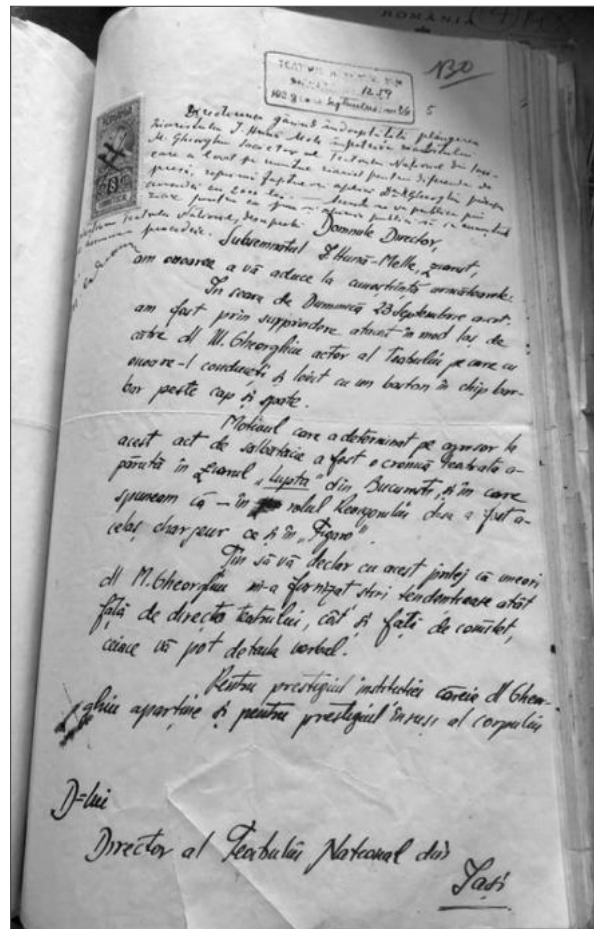 ROMÂNIA
130
TEATRUL
1259
192 9 luna Septembrie ziua 26
5
Direcțiunea găsind îndreptățită plângerea
ziaristului I. Hună Melle împotriva societarului
M. Gheorghiu Societar al Teatrului Național din Iași
care a lovit pe numitul ziarist pentru diferende de
presă, reprimă faptele și aplică D-lui Gheorghiu
amendă de 2000 lei. se va publica prin
ziare pentru ca și opinia publică să cunoască
Teatrului Național, desaprobă
procedeie.
Domnule Director,
Subsemnatul I. Hună-Melle, ziarist,
am onoarea a vă aduce la cunoștință următoarele:
În seara de Duminică 23 Septembrie a.crt.
am fost prin surprindere atacat în mod laș de
către dl M. Gheorghiu actor al Teatrului pe care cu
onoare-l conduceți și lovit cu un baston în chip bar-
bar peste cap și spate.
Motivul care a determinat pe agresor la
acest act de sălbatăcie a fost o cronică teatrală a-
părută în ziarul „Lupta" din București, și în care
spuneam că – în rolul dsa a fost a-
celaș charjeur ce și în „Figaro".
Țin să vă declar cu acest prilej că uneori
dl M. Gheorghiu mi-a furnizat știri tendențioase atât
față de direcția teatrului, cât și față de comitet,
ceiace vă pot detaila verbal.
Pentru prestigiul instituției căreia dl Gheor-
ghiu aparține și pentru prestigiul însuși al corpului
D-lui
Director al Teatrului Național din
Iași